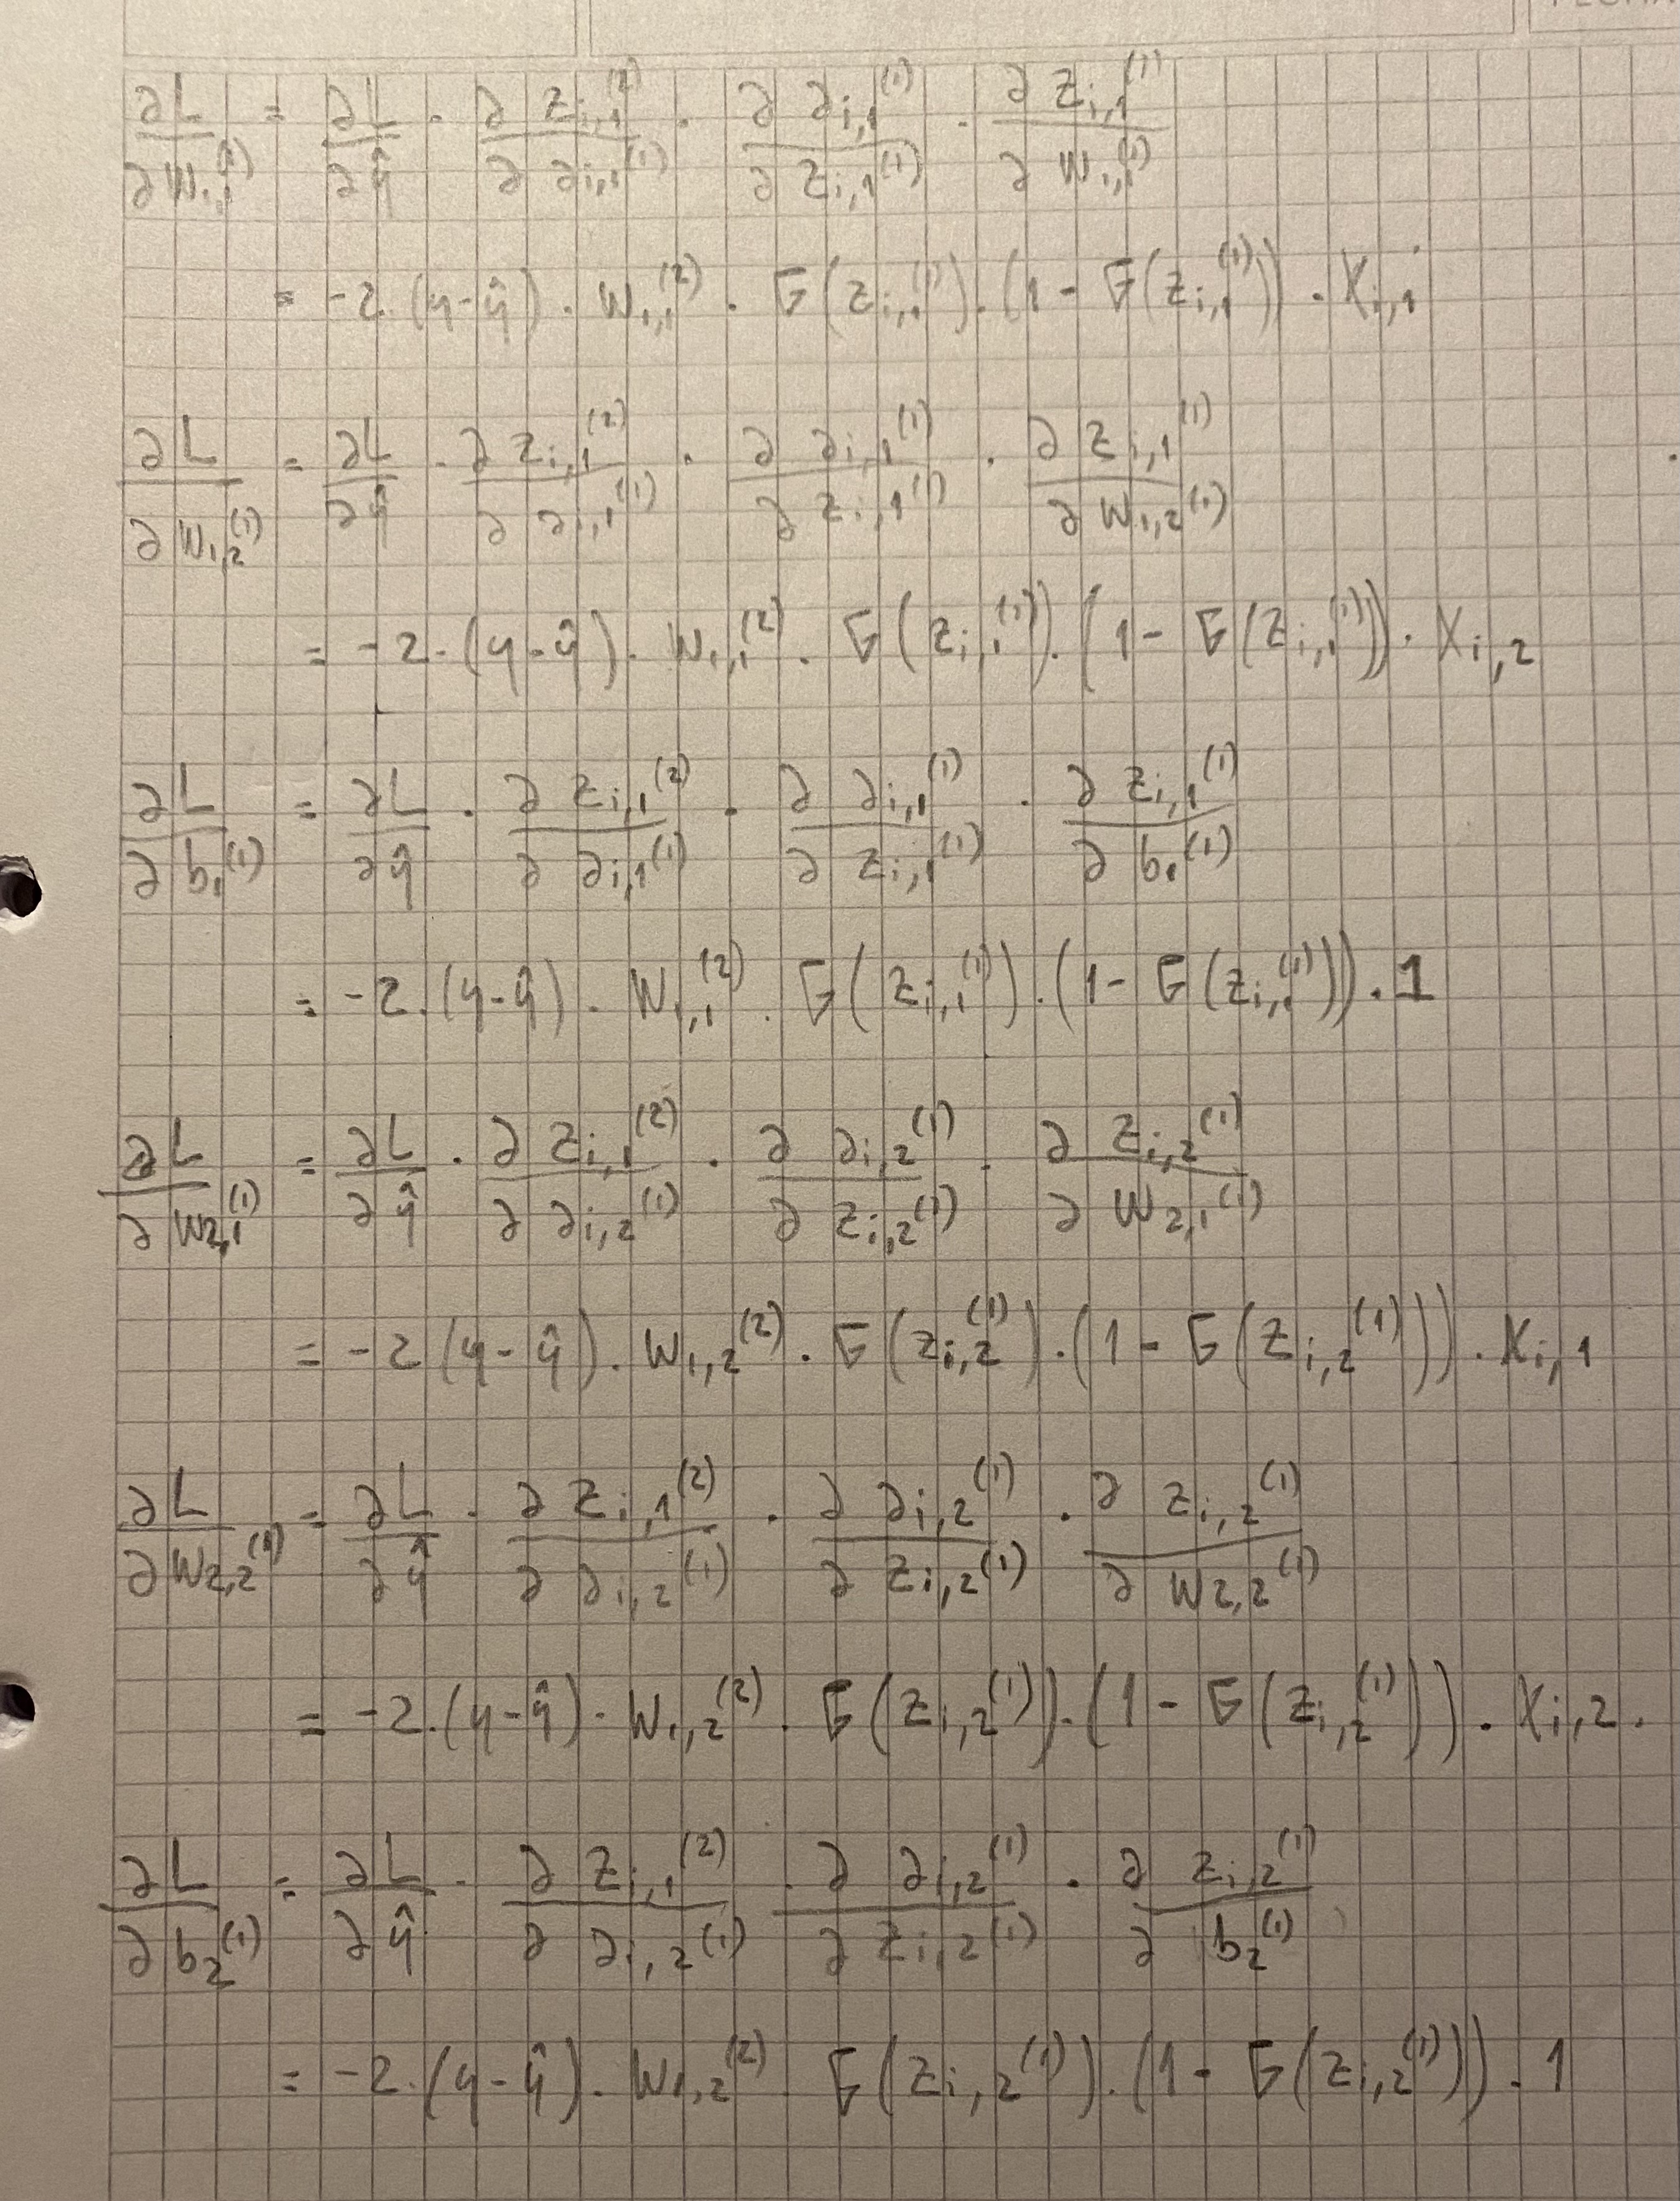 ∂L/∂W₁,₁⁽¹⁾ = ∂L/∂ŷ · ∂z_{i,1}⁽²⁾/∂a_{i,1}⁽¹⁾ · ∂a_{i,1}⁽¹⁾/∂z_{i,1}⁽¹⁾ · ∂z_{i,1}⁽¹⁾/∂W₁,₁⁽¹⁾
= -2·(y-ŷ) · W₁,₁⁽²⁾ · σ(z_{i,1}⁽¹⁾)·(1-σ(z_{i,1}⁽¹⁾)) · X_{i,1}
∂L/∂W₁,₂⁽¹⁾ = ∂L/∂ŷ · ∂z_{i,1}⁽²⁾/∂a_{i,1}⁽¹⁾ · ∂a_{i,1}⁽¹⁾/∂z_{i,1}⁽¹⁾ · ∂z_{i,1}⁽¹⁾/∂W₁,₂⁽¹⁾
= -2·(y-ŷ) · W₁,₁⁽²⁾ · σ(z_{i,1}⁽¹⁾)·(1-σ(z_{i,1}⁽¹⁾)) · X_{i,2}
∂L/∂b₁⁽¹⁾ = ∂L/∂ŷ · ∂z_{i,1}⁽²⁾/∂a_{i,1}⁽¹⁾ · ∂a_{i,1}⁽¹⁾/∂z_{i,1}⁽¹⁾ · ∂z_{i,1}⁽¹⁾/∂b₁⁽¹⁾
= -2·(y-ŷ) · W₁,₁⁽²⁾ · σ(z_{i,1}⁽¹⁾)·(1-σ(z_{i,1}⁽¹⁾)) · 1
∂L/∂W₂,₁⁽¹⁾ = ∂L/∂ŷ · ∂z_{i,1}⁽²⁾/∂a_{i,2}⁽¹⁾ · ∂a_{i,2}⁽¹⁾/∂z_{i,2}⁽¹⁾ · ∂z_{i,2}⁽¹⁾/∂W₂,₁⁽¹⁾
= -2(y-ŷ) · W₁,₂⁽²⁾ · σ(z_{i,2}⁽¹⁾)·(1-σ(z_{i,2}⁽¹⁾)) · X_{i,1}
∂L/∂W₂,₂⁽¹⁾ = ∂L/∂ŷ · ∂z_{i,1}⁽²⁾/∂a_{i,2}⁽¹⁾ · ∂a_{i,2}⁽¹⁾/∂z_{i,2}⁽¹⁾ · ∂z_{i,2}⁽¹⁾/∂W₂,₂⁽¹⁾
= -2·(y-ŷ) · W₁,₂⁽²⁾ · σ(z_{i,2}⁽¹⁾)·(1-σ(z_{i,2}⁽¹⁾)) · X_{i,2}.
∂L/∂b₂⁽¹⁾ = ∂L/∂ŷ · ∂z_{i,1}⁽²⁾/∂a_{i,2}⁽¹⁾ · ∂a_{i,2}⁽¹⁾/∂z_{i,2}⁽¹⁾ · ∂z_{i,2}⁽¹⁾/∂b₂⁽¹⁾
= -2·(y-ŷ) · W₁,₂⁽²⁾ · σ(z_{i,2}⁽¹⁾)·(1-σ(z_{i,2}⁽¹⁾)) · 1